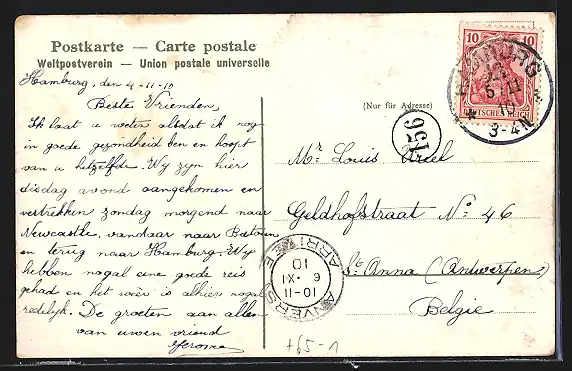 Postkarte — Carte postale
Weltpostverein — Union postale universelle
Hamburg, den 4-11-10
Beste Vrienden,
Ik laat u weten altdat ik nog
in goede gezondheid ben en hoop't
van u hetzelfde. Wy zyn hier
disdag avond aangekomen en
vertrekken zondag morgend naar
Newcastle, vandaar naar
en terug naar Hamburg. Wy
hebben nogal eene goede reis
gehad en het weer is alhier nogal
redelijk. De groeten aan allen
van uwen vriend
Jerome
(Nur für Adresse)
Mr. Louis Ariel
Geldhofstraat No 46
St Anna (Antwerpen)
Belgie
10 10
DEUTSCHES REICH
HAMBURG
5.11
10
3-4N
156
ANVERS ARRIVEE
10-11
6 · XI
10
+65-1